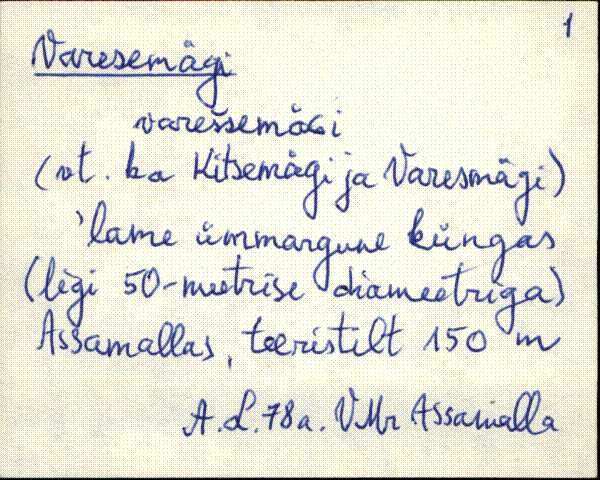 1
Varesemägi
varessemäGi
(vt. ka Kitsemägi ja Varesmägi)
'lame ümmargune küngas
(ligi 50-meetrise diameetriga)
Assamallas, teeristilt 150 m
A.L. 78a. VMr Assamalla